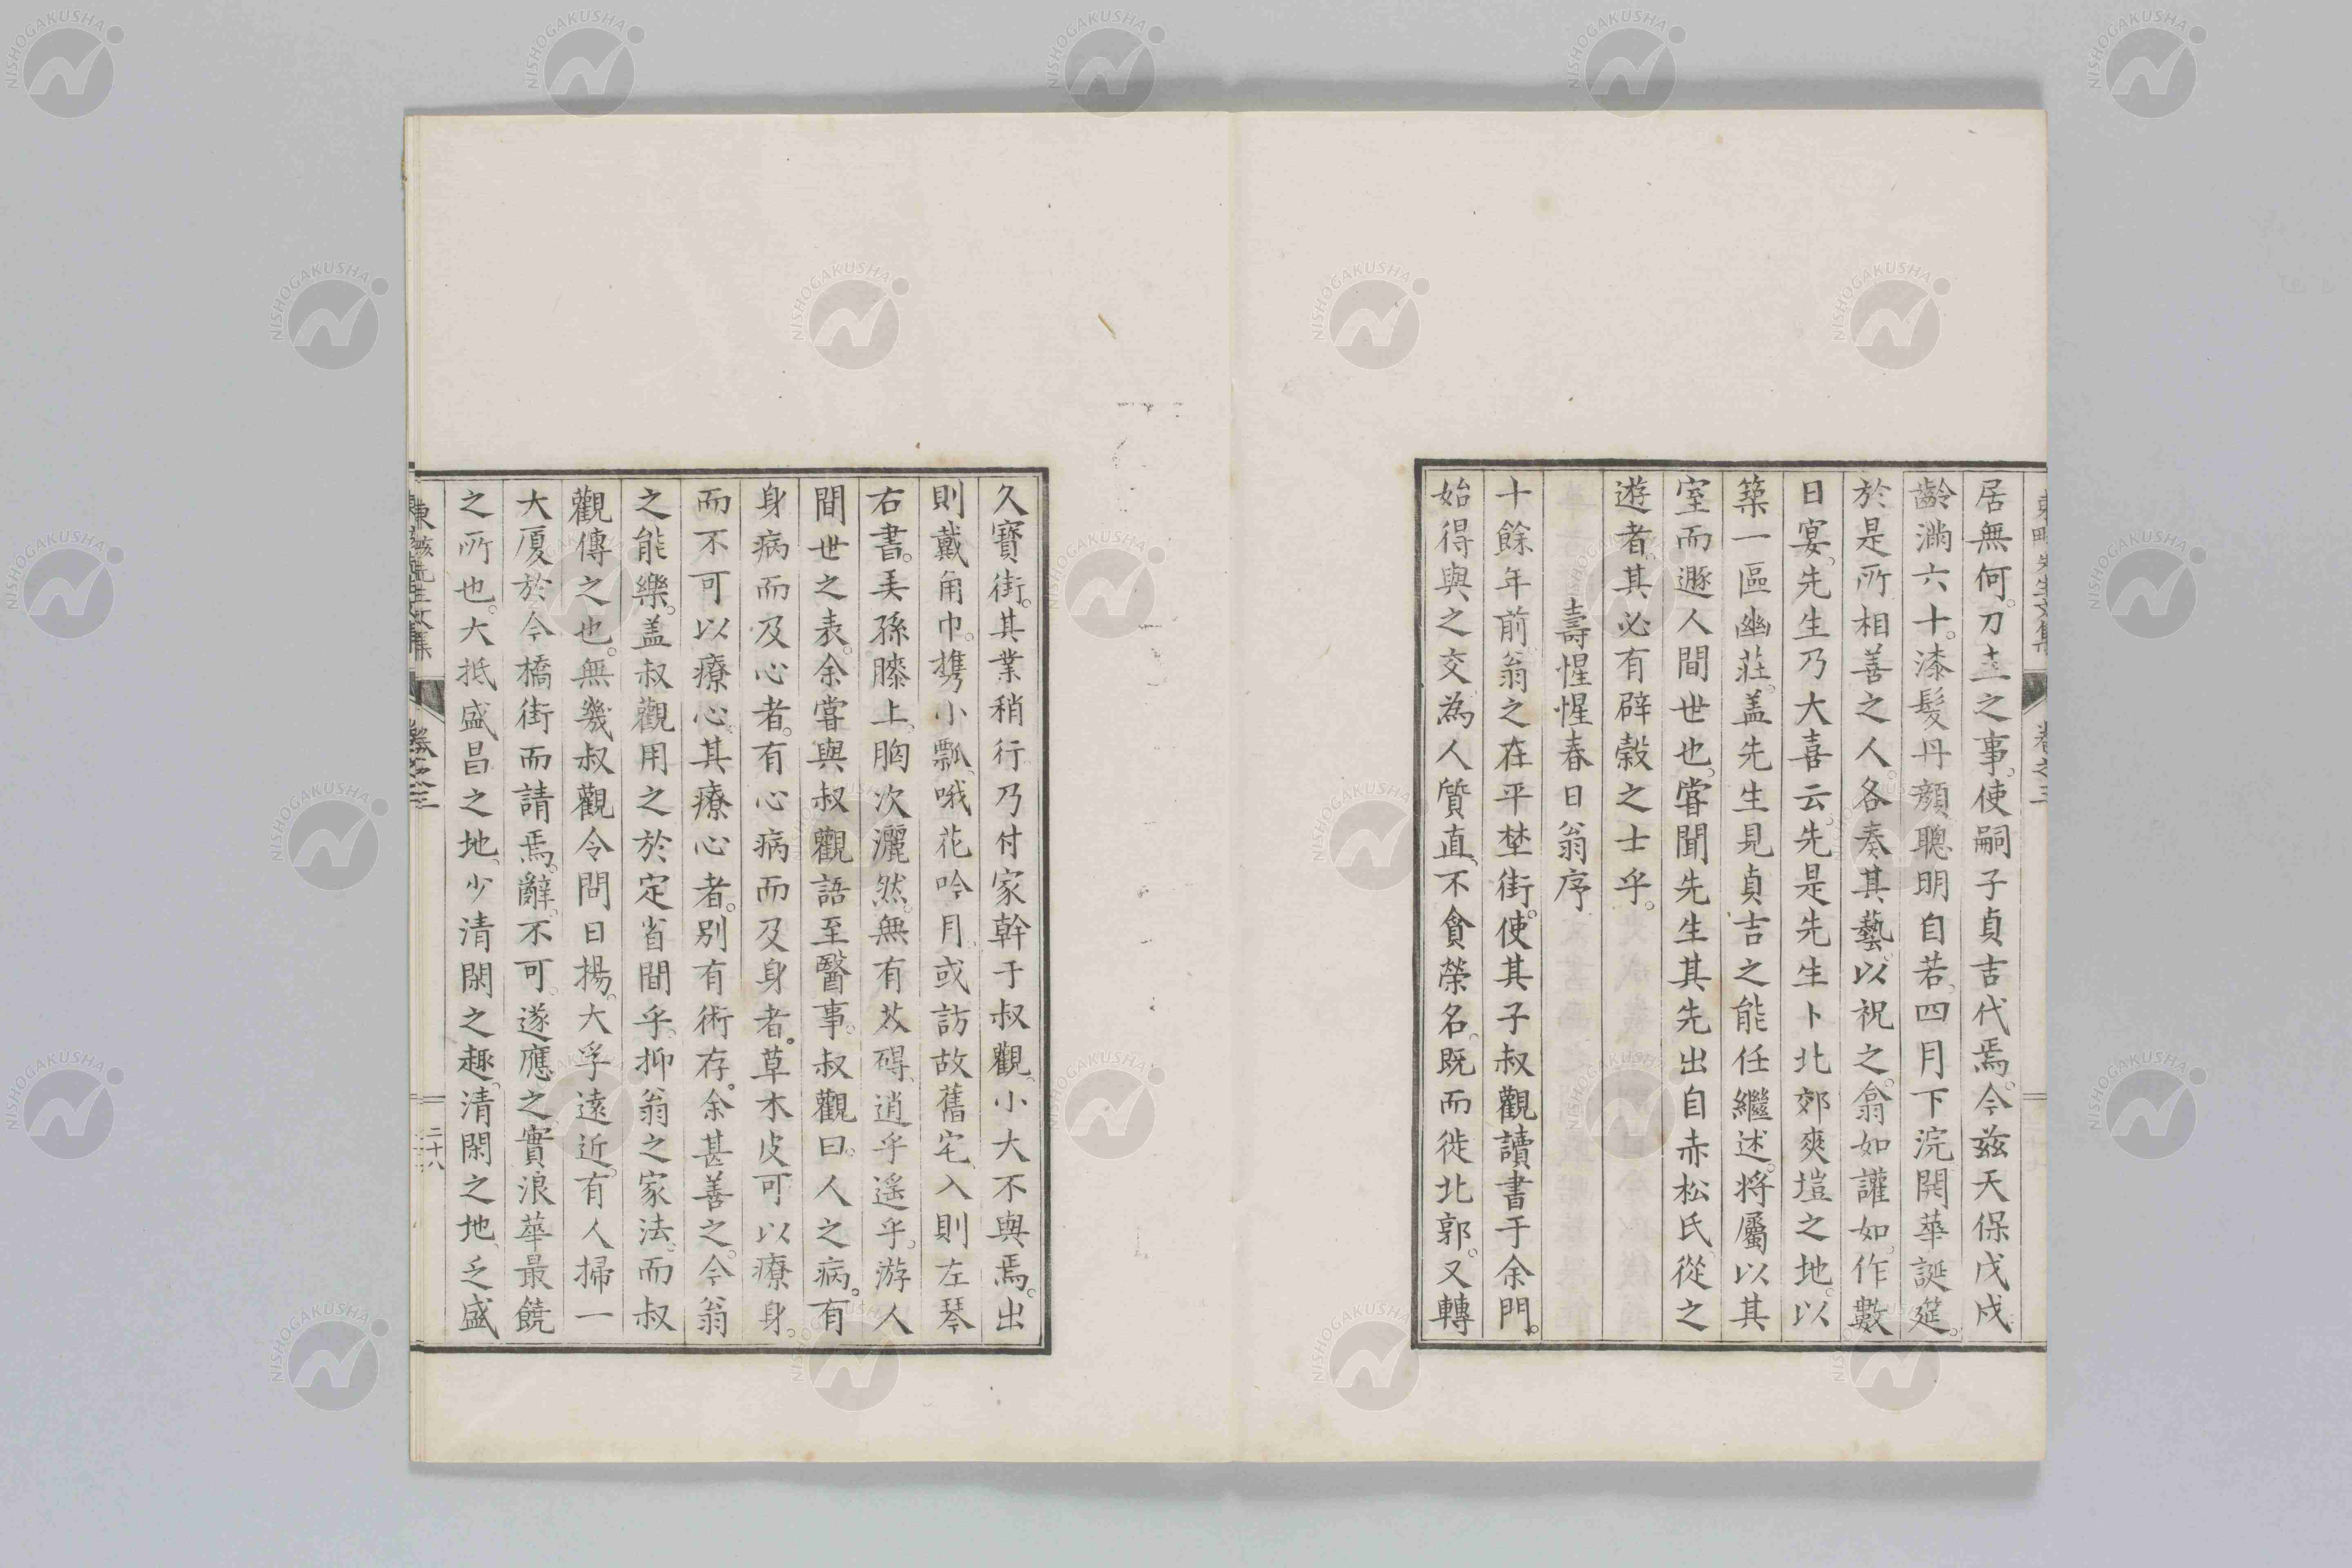 居無何。刀圭之事。使嗣子貞吉代焉。今茲天保戊戌
齡滿六十。漆髮丹顏聰明自若。四月下浣開華誕筵。
於是所相善之人。各奏其藝。以祝之。翕如讙如。作數
日宴。先生乃大喜云。先是先生卜北郊爽塏之地。以
築一區幽莊。盖先生見貞吉之能任繼述。將屬以其
室而遯人間世也。嘗聞先生其先出自赤松氏。從之
遊者。其必有辟穀之士乎。
壽惺惺春日翁序
十餘年前。翁之在平埜街。使其子叔觀讀書于余門。
始得與之交。為人質直。不貪榮名。既而徙北郭。又轉
久寶街。其業稍行乃付家幹于叔觀。小大不與焉。出
則戴角巾。携小瓢。哦花吟月。或訪故舊宅。入則左琴
右書。弄孫膝上。胸次灑然。無有芥碍。逍乎遙乎。游人
間世之表。余嘗與叔觀語至醫事。叔觀曰。人之病。有
身病而及心者。有心病而及身者。草木皮可以療身。
而不可以療心。其療心者。別有術存。余甚善之。今翁
之能樂。盖叔觀用之於定省間乎。抑翁之家法。而叔
觀傳之也。無幾叔觀令問日揚。大孚遠近。有人掃一
大廈於今橋街而請焉。辭。不可。遂應之。實浪華最饒
之所也。大抵盛昌之地。少清閑之趣。清閑之地。乏盛
卷之三
二十八